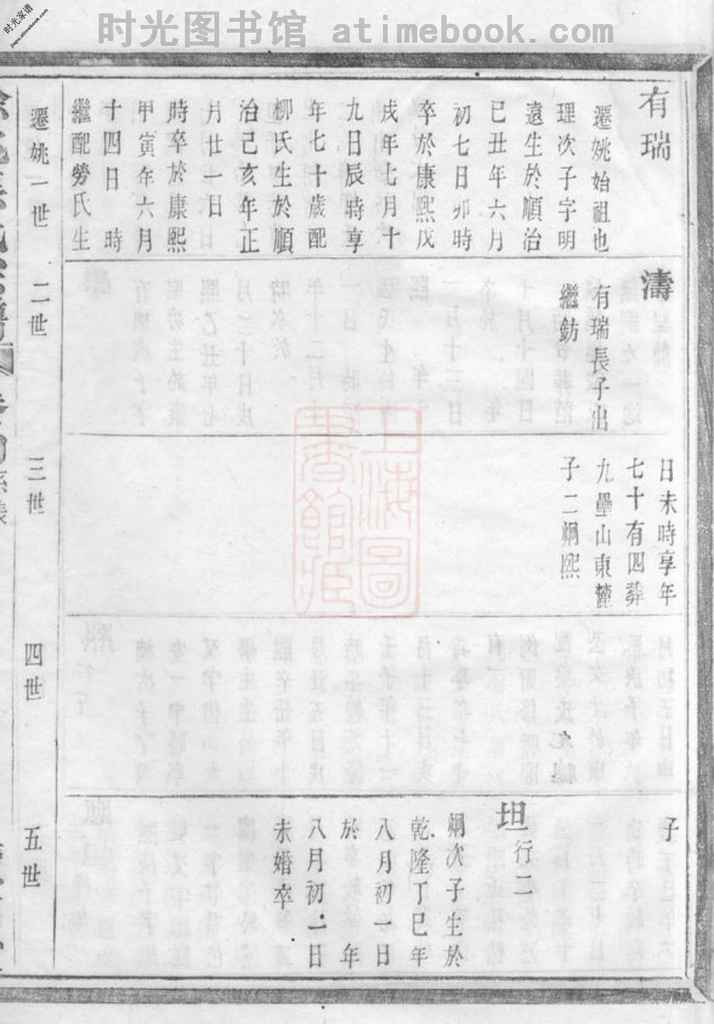 时光图书馆 atimebook.com
时光家谱
www.atimebook.com
有瑞
遷姚始祖也
理次子字明
遠生於順治
已丑年六月
初七日卯時
卒於康熙戊
戌年七月十
九日辰時享
年七十歲配
柳氏生於順
治己亥年正
月廿一日
時卒於康熙
甲寅年六月
十四日 時
繼配勞氏生
濤
有瑞長子出
繼鈁
日未時享年
七十有四葬
九壘山東麓
子二炳熙
子
坦 行二
炳次子生於
乾隆丁巳年
八月初一日
於 年
八月初二日
未婚卒
遷姚一世
二世
三世
四世
五世
上海圖書館藏